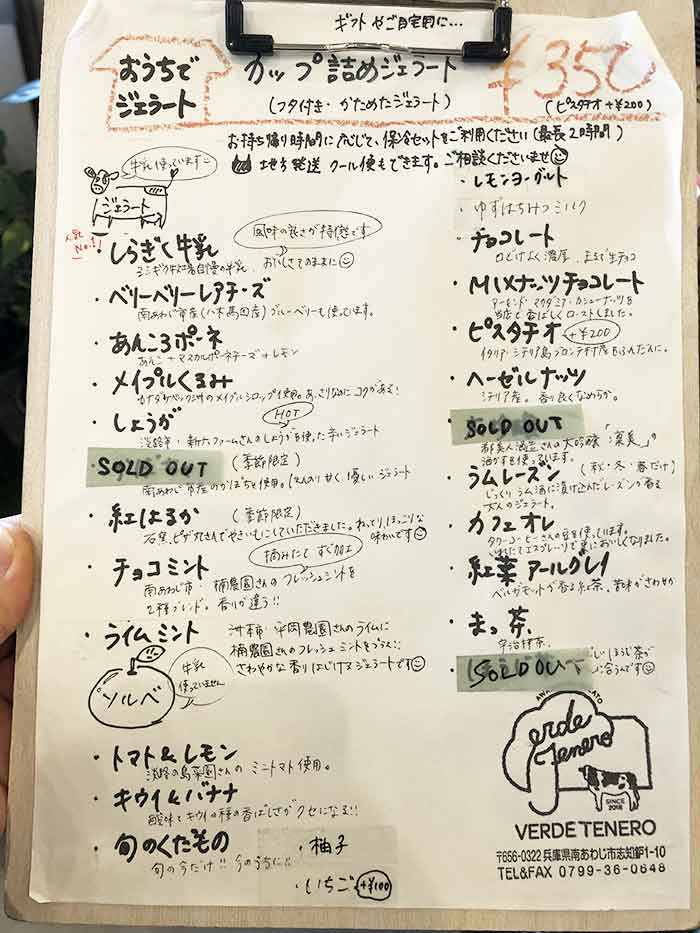 ギフトやご自宅用に…
おうちで
ジェラート
カップ詰めジェラート
¥350
(フタ付き・かためたジェラート)
(ピスタチオ+¥200)
お持ち帰り時間に応じて、保冷セットをご利用ください(最長2時間)
地方発送 クール便もできます。ご相談くださいませ
牛乳使っています
ジェラート
人気No.1!
風味の良さが特徴です
・しらぎく牛乳
おいしさそのままに
・ベリーベリーレアチーズ
南あわじ市産(八木馬回産)ブルーベリーも使っています。
・あんころボーネ
あんこ+マスカルポーネチーズ+レモン
・メイプルくるみ
カナダケベック州のメイプルシロップ使用。あっさりなのにコクがある!
・しょうが
HOT
淡路市・新六ファームさんのしょうがを使った辛いジェラート
・SOLD OUT (季節限定)
南あわじ市産のかぼちゃ使用。ほんのり甘く、優しいジェラート
・紅はるか (季節限定)
石窯ピザ丸さんでやきいもにしていただきました。ねっとり、ほっこりな
味わいです
・チョコミント
摘みたてすぐ加工
南あわじ市・楠農園さんのフレッシュミントを
2種ブレンド。香りが違う!!
・ライムミント
洲本市・平岡農園さんのライムに
楠農園さんのフレッシュミントをプラス!!
さわやかな香りはじけるジェラートです
ソルベ
牛乳
使っていません
・トマト&レモン
淡路の島菜園さんのミニトマト使用。
・キウイ&バナナ
酸味とキウイの種の香ばしさがクセになる!!
・旬のくだもの
旬の今だけ!!今のうちに!!
・柚子
・いちご +¥100
・レモンヨーグルト
・ゆずはちみつミルク
・チョコレート
口どけよく濃厚。まるで生チョコ
・MIXナッツチョコレート
アーモンド・マカダミア・カシューナッツを
当店で香ばしくローストしました。
・ピスタチオ +¥200
イタリア・シチリア島ブロンテ村産をふんだんに。
・ヘーゼルナッツ
シチリア産。香り良くなめらか。
・SOLD OUT
都美人酒造さんの大吟醸「凜美」の
酒かすを使っています。
・ラムレーズン (秋・冬・春だけ)
じっくりラム酒に漬け込んだレーズンが香る
大人のジェラート。
・カフェオレ
タワーコーヒーさんの豆を使っています。
・紅茶 アールグレイ
ベルガモットが香る紅茶。苦味がさわやか
・まっ茶
宇治抹茶。
・SOLD OUT
Verde
Tenero
SINCE
2018
VERDE TENERO
〒656-0322 兵庫県南あわじ市志知鈩1-10
TEL&FAX 0799-36-0648